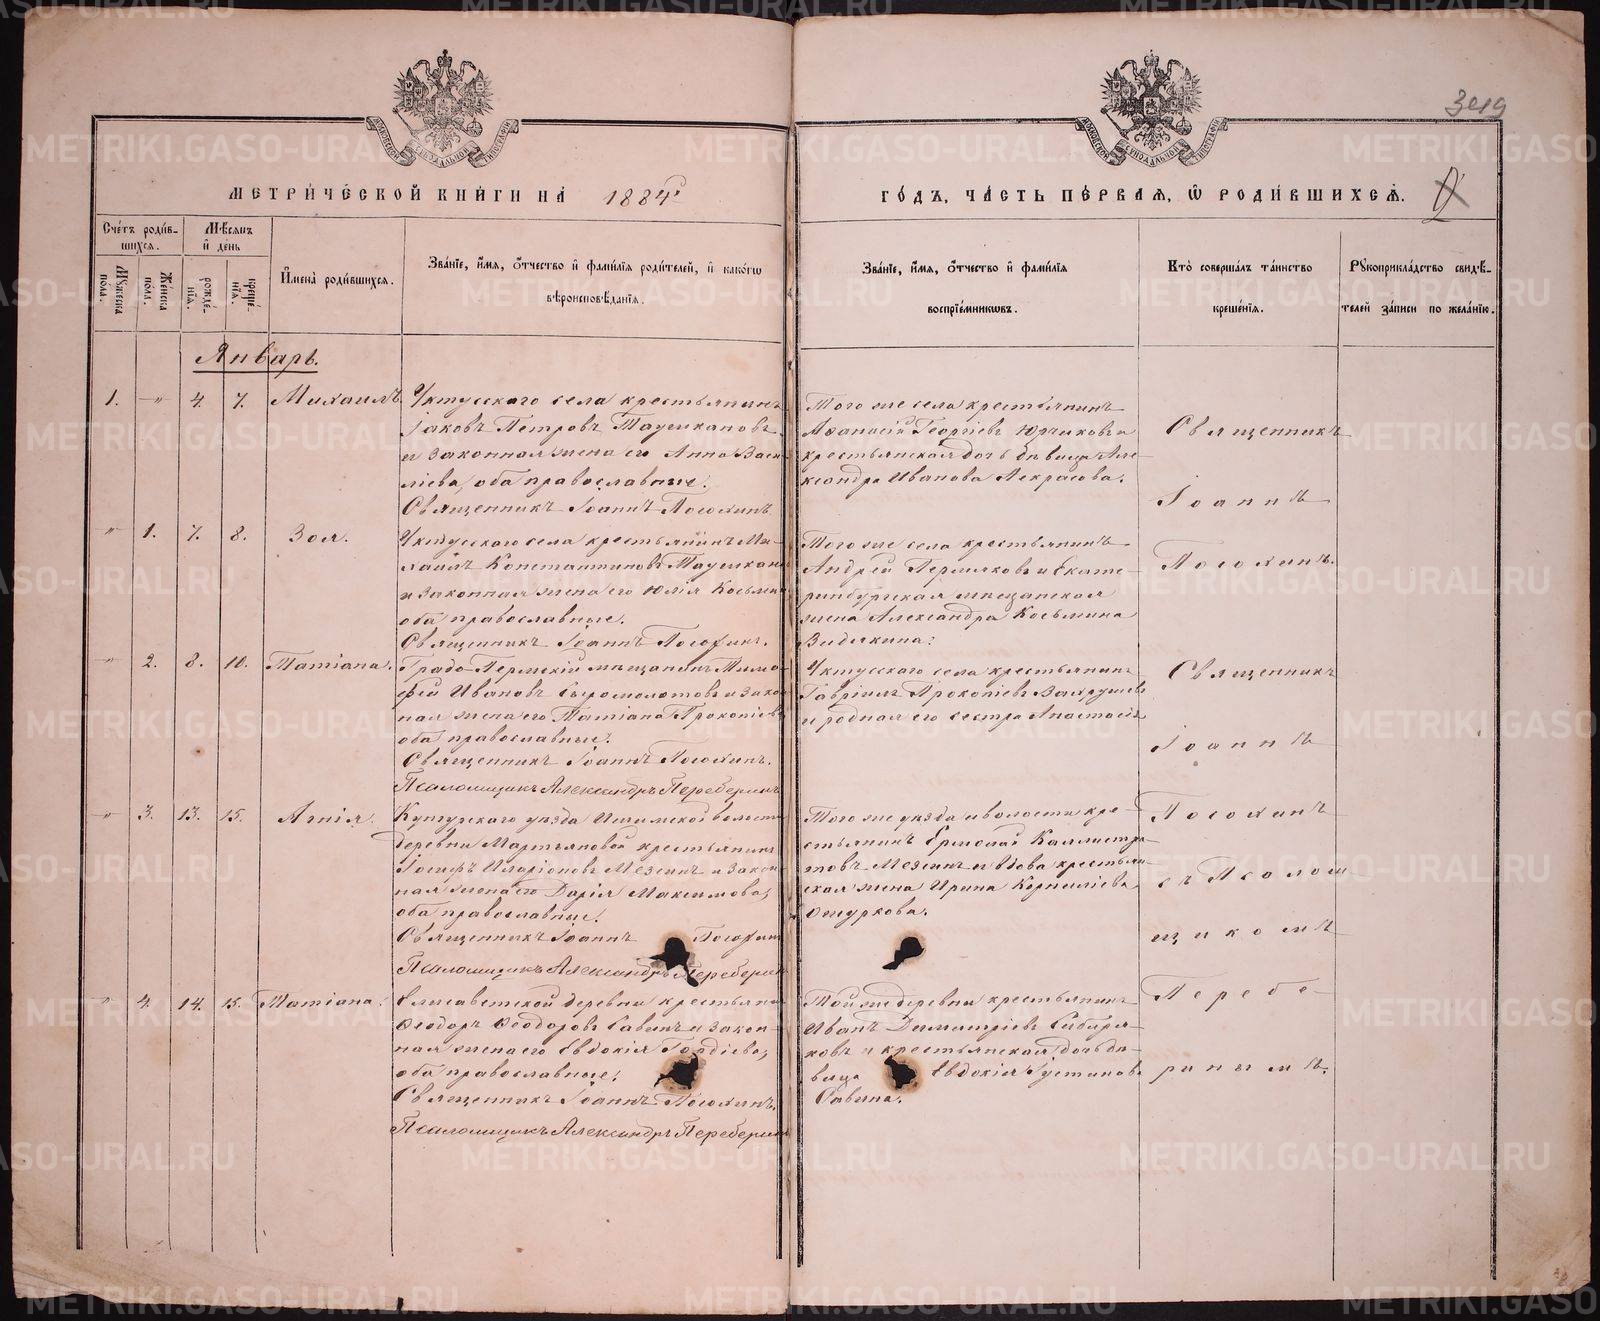 3019
МЕТРИЧЕСКОЙ КНИГИ НА 1884
ГОДЪ, ЧАСТЬ ПЕРВАЯ, Ѡ РОДИВШИХСЯ.
Счетъ родив-
шихся.
Мужеска пола.
Женска пола.
Мѣсяцъ
и день
рожде-
нія.
креще-
нія.
Имена родившихся.
Званіе, имя, отчество и фамилія родителей, и какогѡ
вѣроисповѣданія.
Званіе, имя, отчество и фамилія
воспріемникѡвъ.
Кто совершалъ таинство
крещенія.
Рукоприкладство свидѣ-
телей записи по желанію.
Январь.
1. —„— 4. 7. Михаилъ
Уктусскаго села крестьянинъ
Іаковъ Петровъ Таушкановъ
и законная жена его Анна Васи-
ліева, оба православные.
Священникъ Іоаннъ Посохинъ
Того же села крестьянинъ
Аѳанасій Георгіевъ и
крестьянская дочь дѣвица Але-
ксандра Иванова Некрасова.
„ 1. 7. 8. Зоя.
Уктусскаго села крестьянинъ Ми-
хаилъ Константиновъ Таушкано
и законная жена его Юлія Косьмин
оба православные.
Священникъ Іоаннъ Посохинъ.
Того же села крестьянинъ
Андрей Пермяковъ и Екате-
ринбургская мѣщанская
жена Александра Косьмина
„ 2. 8. 10. Татіана.
Градо-Пермскій мѣщанинъ Тимо-
ѳей Ивановъ Сыромолотовъ и зако
ная жена его Татіана Прокопіев
оба православные.
Священникъ Іоаннъ Посохинъ.
Псаломщикъ Александръ Переберинъ
Уктусскаго села крестьянинъ
Гавріилъ Прокопіевъ Вахрушевъ
и родная его сестра Анастасія
„ 3. 13. 15. Агнія.
Кунгурскаго уѣзда волости
деревни Мартьяновой крестьянинъ
Іосифъ Иларіоновъ Мезенинъ и закон
ная жена его Дарія Максимова,
оба православные.
Священникъ Іоаннъ Посохин
Псаломщикъ Александръ Переберин
Того же уѣзда и волости кре-
стьянинъ Ермолай Каллистра-
товъ Мезенинъ и вдова крестьян-
ская жена Ирина Корниліева
Ошуркова.
„ 4. 14. 15. Татіана.
Елисаветской деревни крестьяни
Ѳеодоръ Ѳеодоровъ Савинъ и закон-
ная жена его Евдокія Гордіева,
оба православные.
Священникъ Іоаннъ Посохинъ.
Псаломщикъ Александръ Переберин
Той же деревни крестьянинъ
Иванъ Димитріевъ Сибиря-
ковъ и крестьянская дочь дѣ-
вица Евдокія Іустинова
Савина.
Священникъ
Іоаннъ
Посохинъ.
Священникъ
Іоаннъ
Посохинъ
съ Псалом-
щикомъ
Перебе-
ринымъ.
METRIKI.GASO-URAL.RU